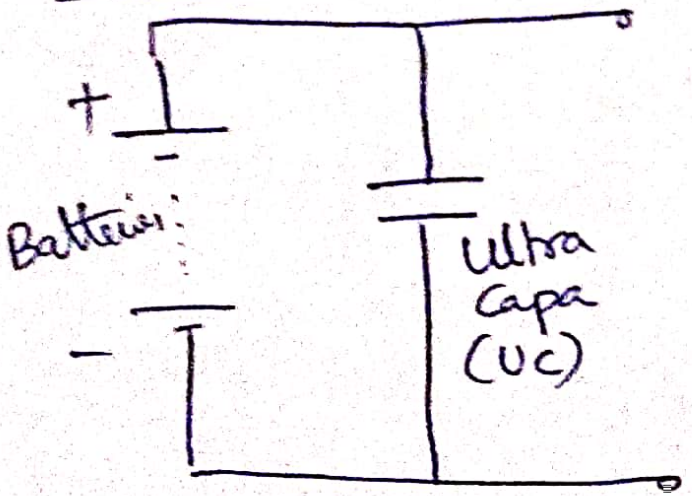 +
Batterie
-
Ultra
Capa
(UC)